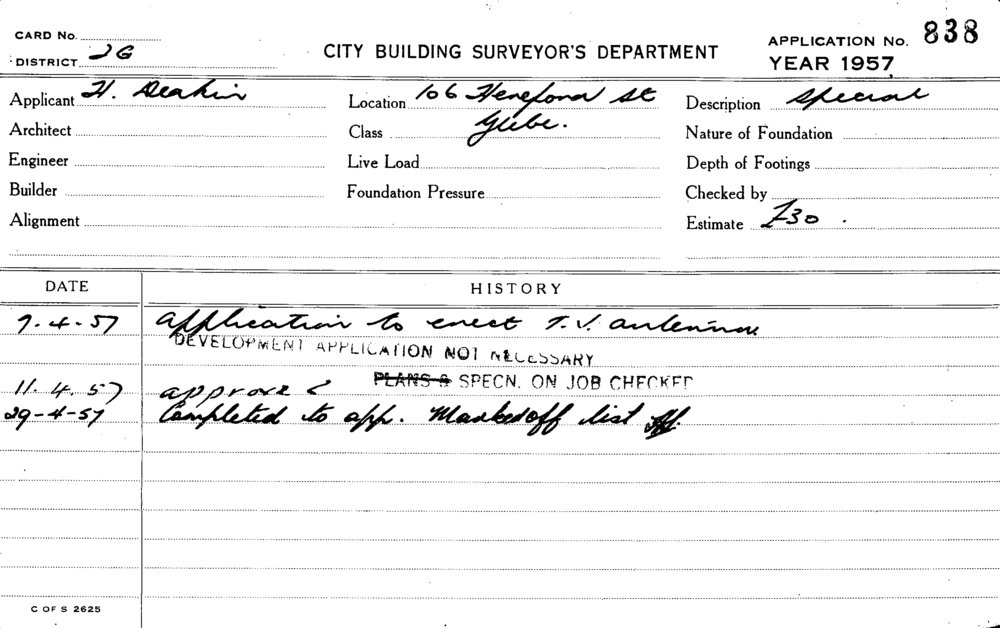 CARD No.
CITY BUILDING SURVEYOR'S DEPARTMENT
APPLICATION No. 838
DISTRICT 2G
YEAR 1957
Applicant H. Deakin
Location 106 Hereford St
Glebe.
Description Special
Architect
Class
Nature of Foundation
Engineer
Live Load
Depth of Footings
Builder
Foundation Pressure
Checked by
Alignment
Estimate £30.
DATE
HISTORY
9.4.57 Application to erect T.V. antenna.
DEVELOPMENT APPLICATION NOT NECESSARY
PLANS & SPECN. ON JOB CHECKED
11.4.57 approve
29-4-57 Completed to app. Marked off list
C OF S 2625